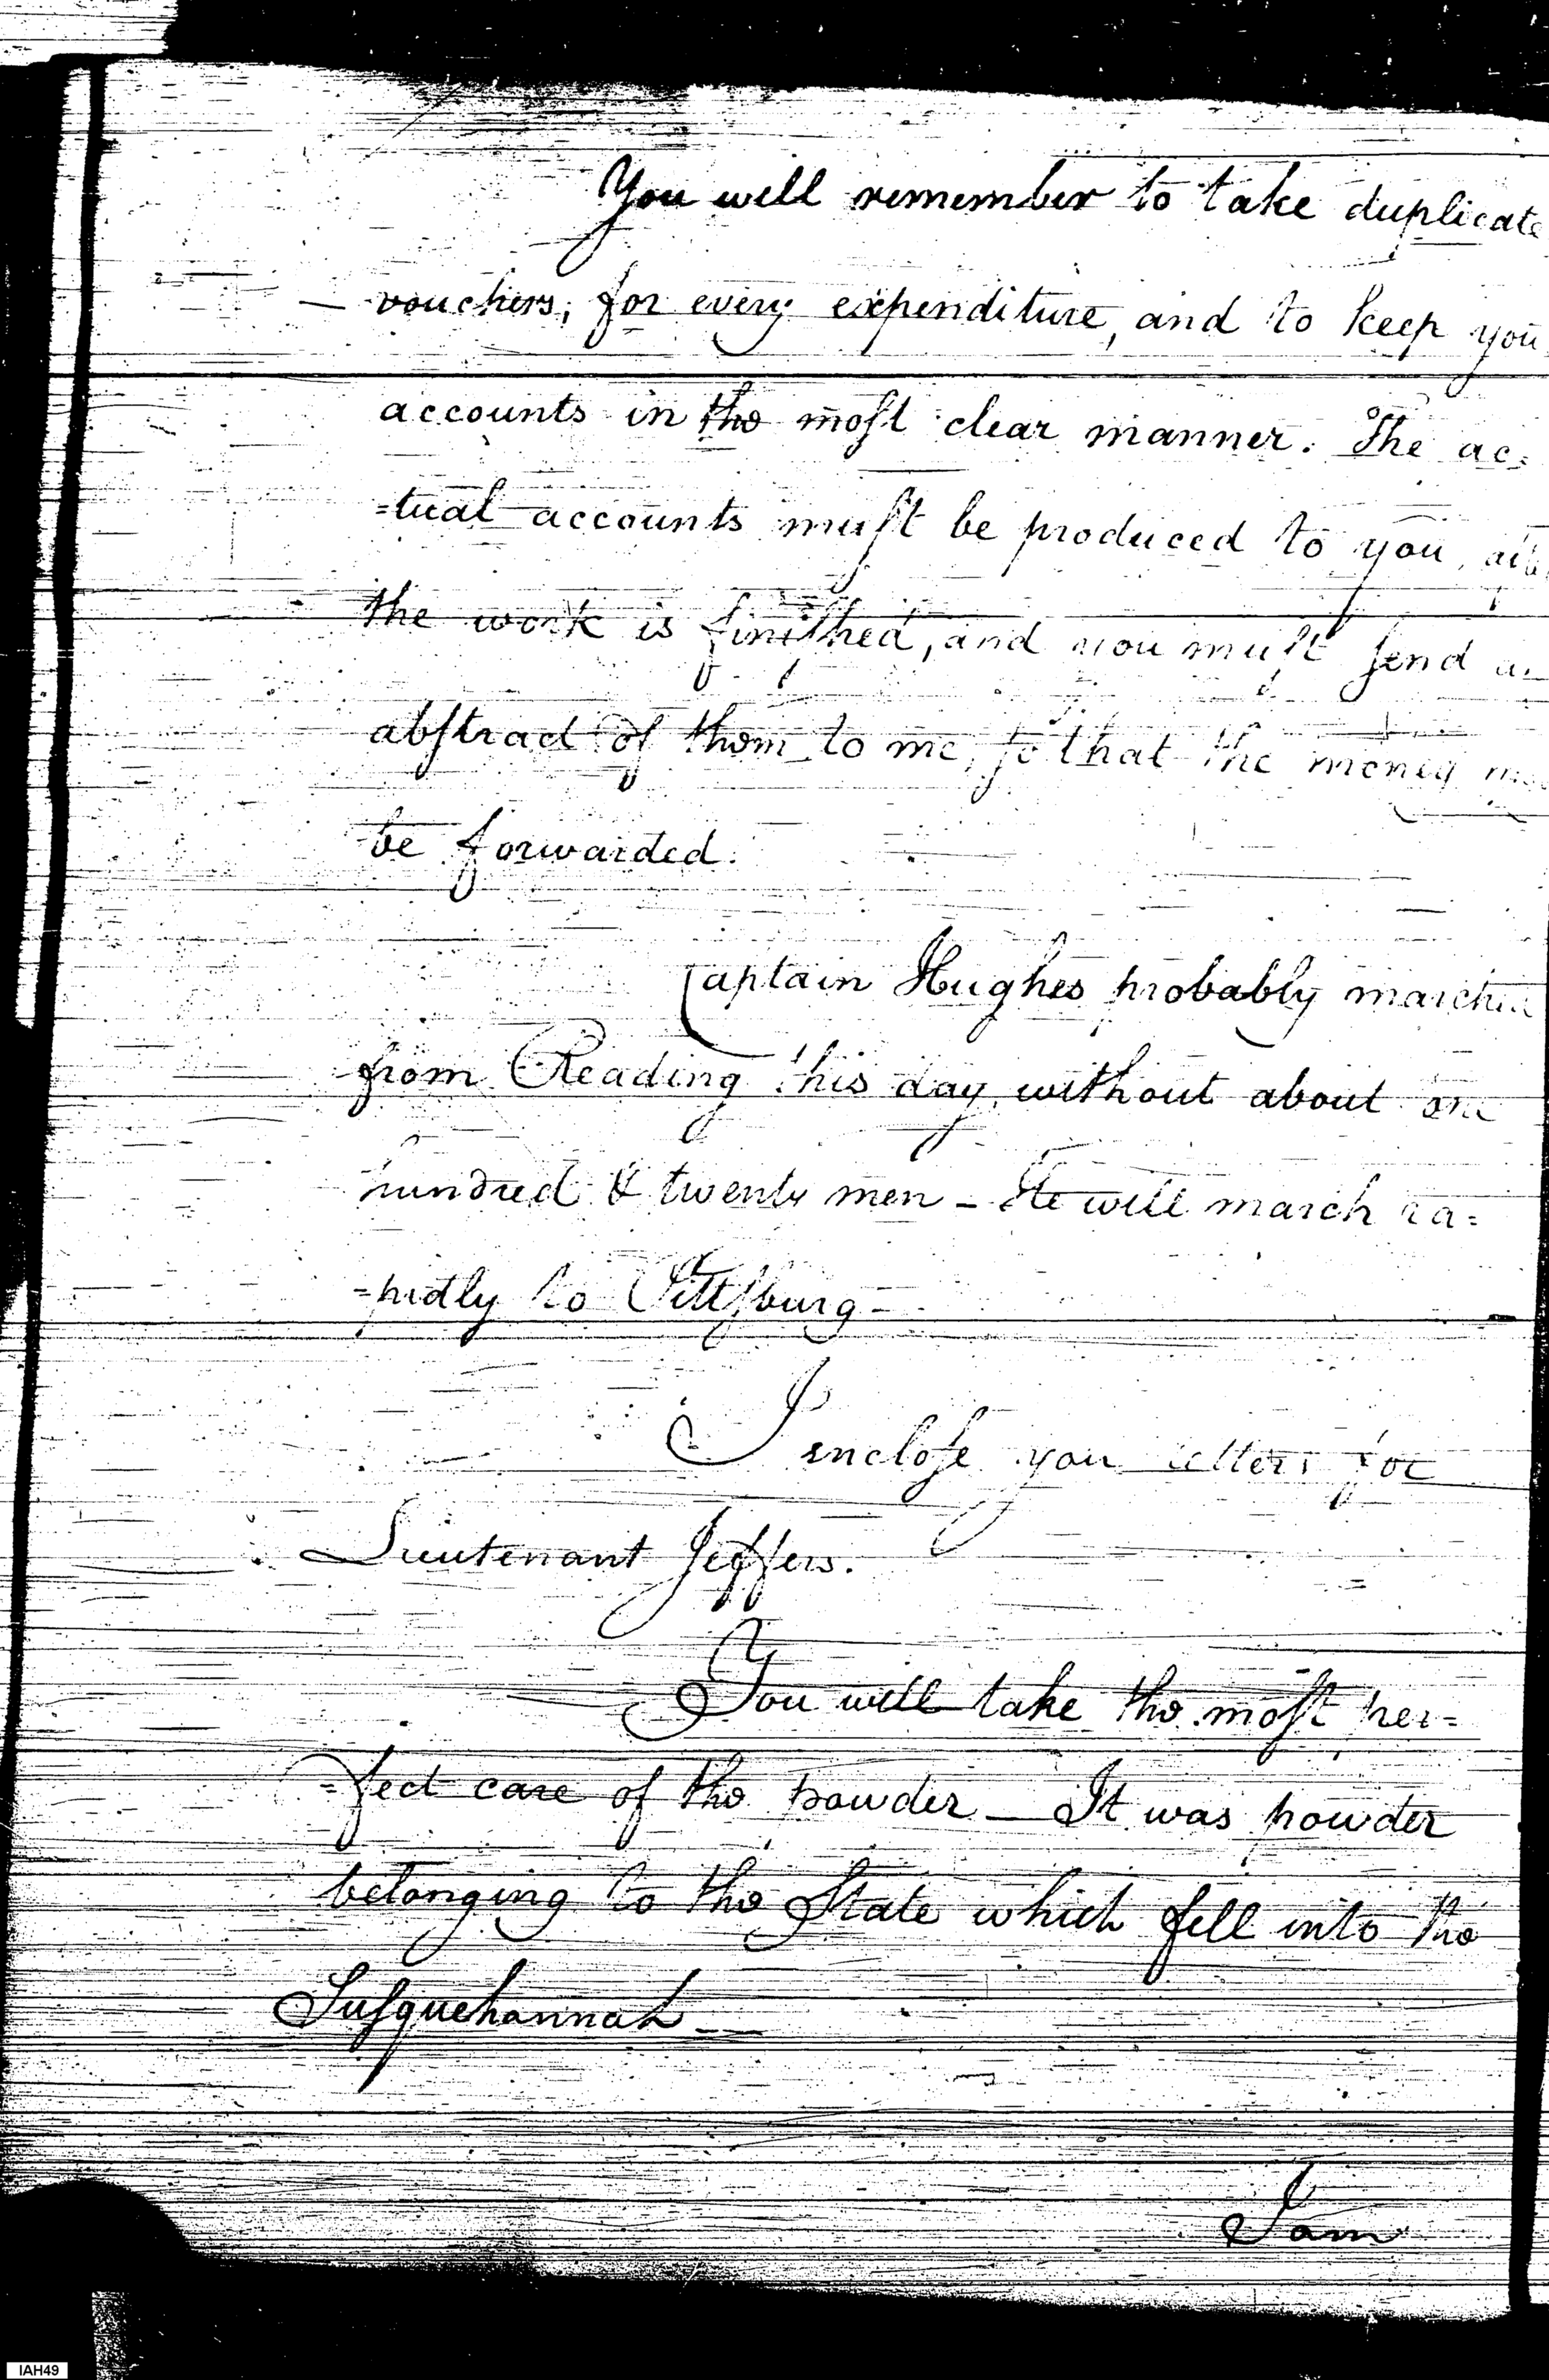 You will remember to take duplicate
vouchers, for every expenditure, and to keep you
accounts in the most clear manner. The ac=
=tual accounts must be produced to you,
the work is finished, and you must send
abstract of them to me, so that the money
be forwarded.
Captain Hughes probably marched
from Reading this day, without about one
hundred & twenty men – He will march ra=
=pidly to Pittsburg–
I inclose you letters for
Lieutenant Jeffers.
You will take the most per=
=fect care of the powder – It was powder
belonging to the State which fell into the
Susquehannah –
I am
IAH49